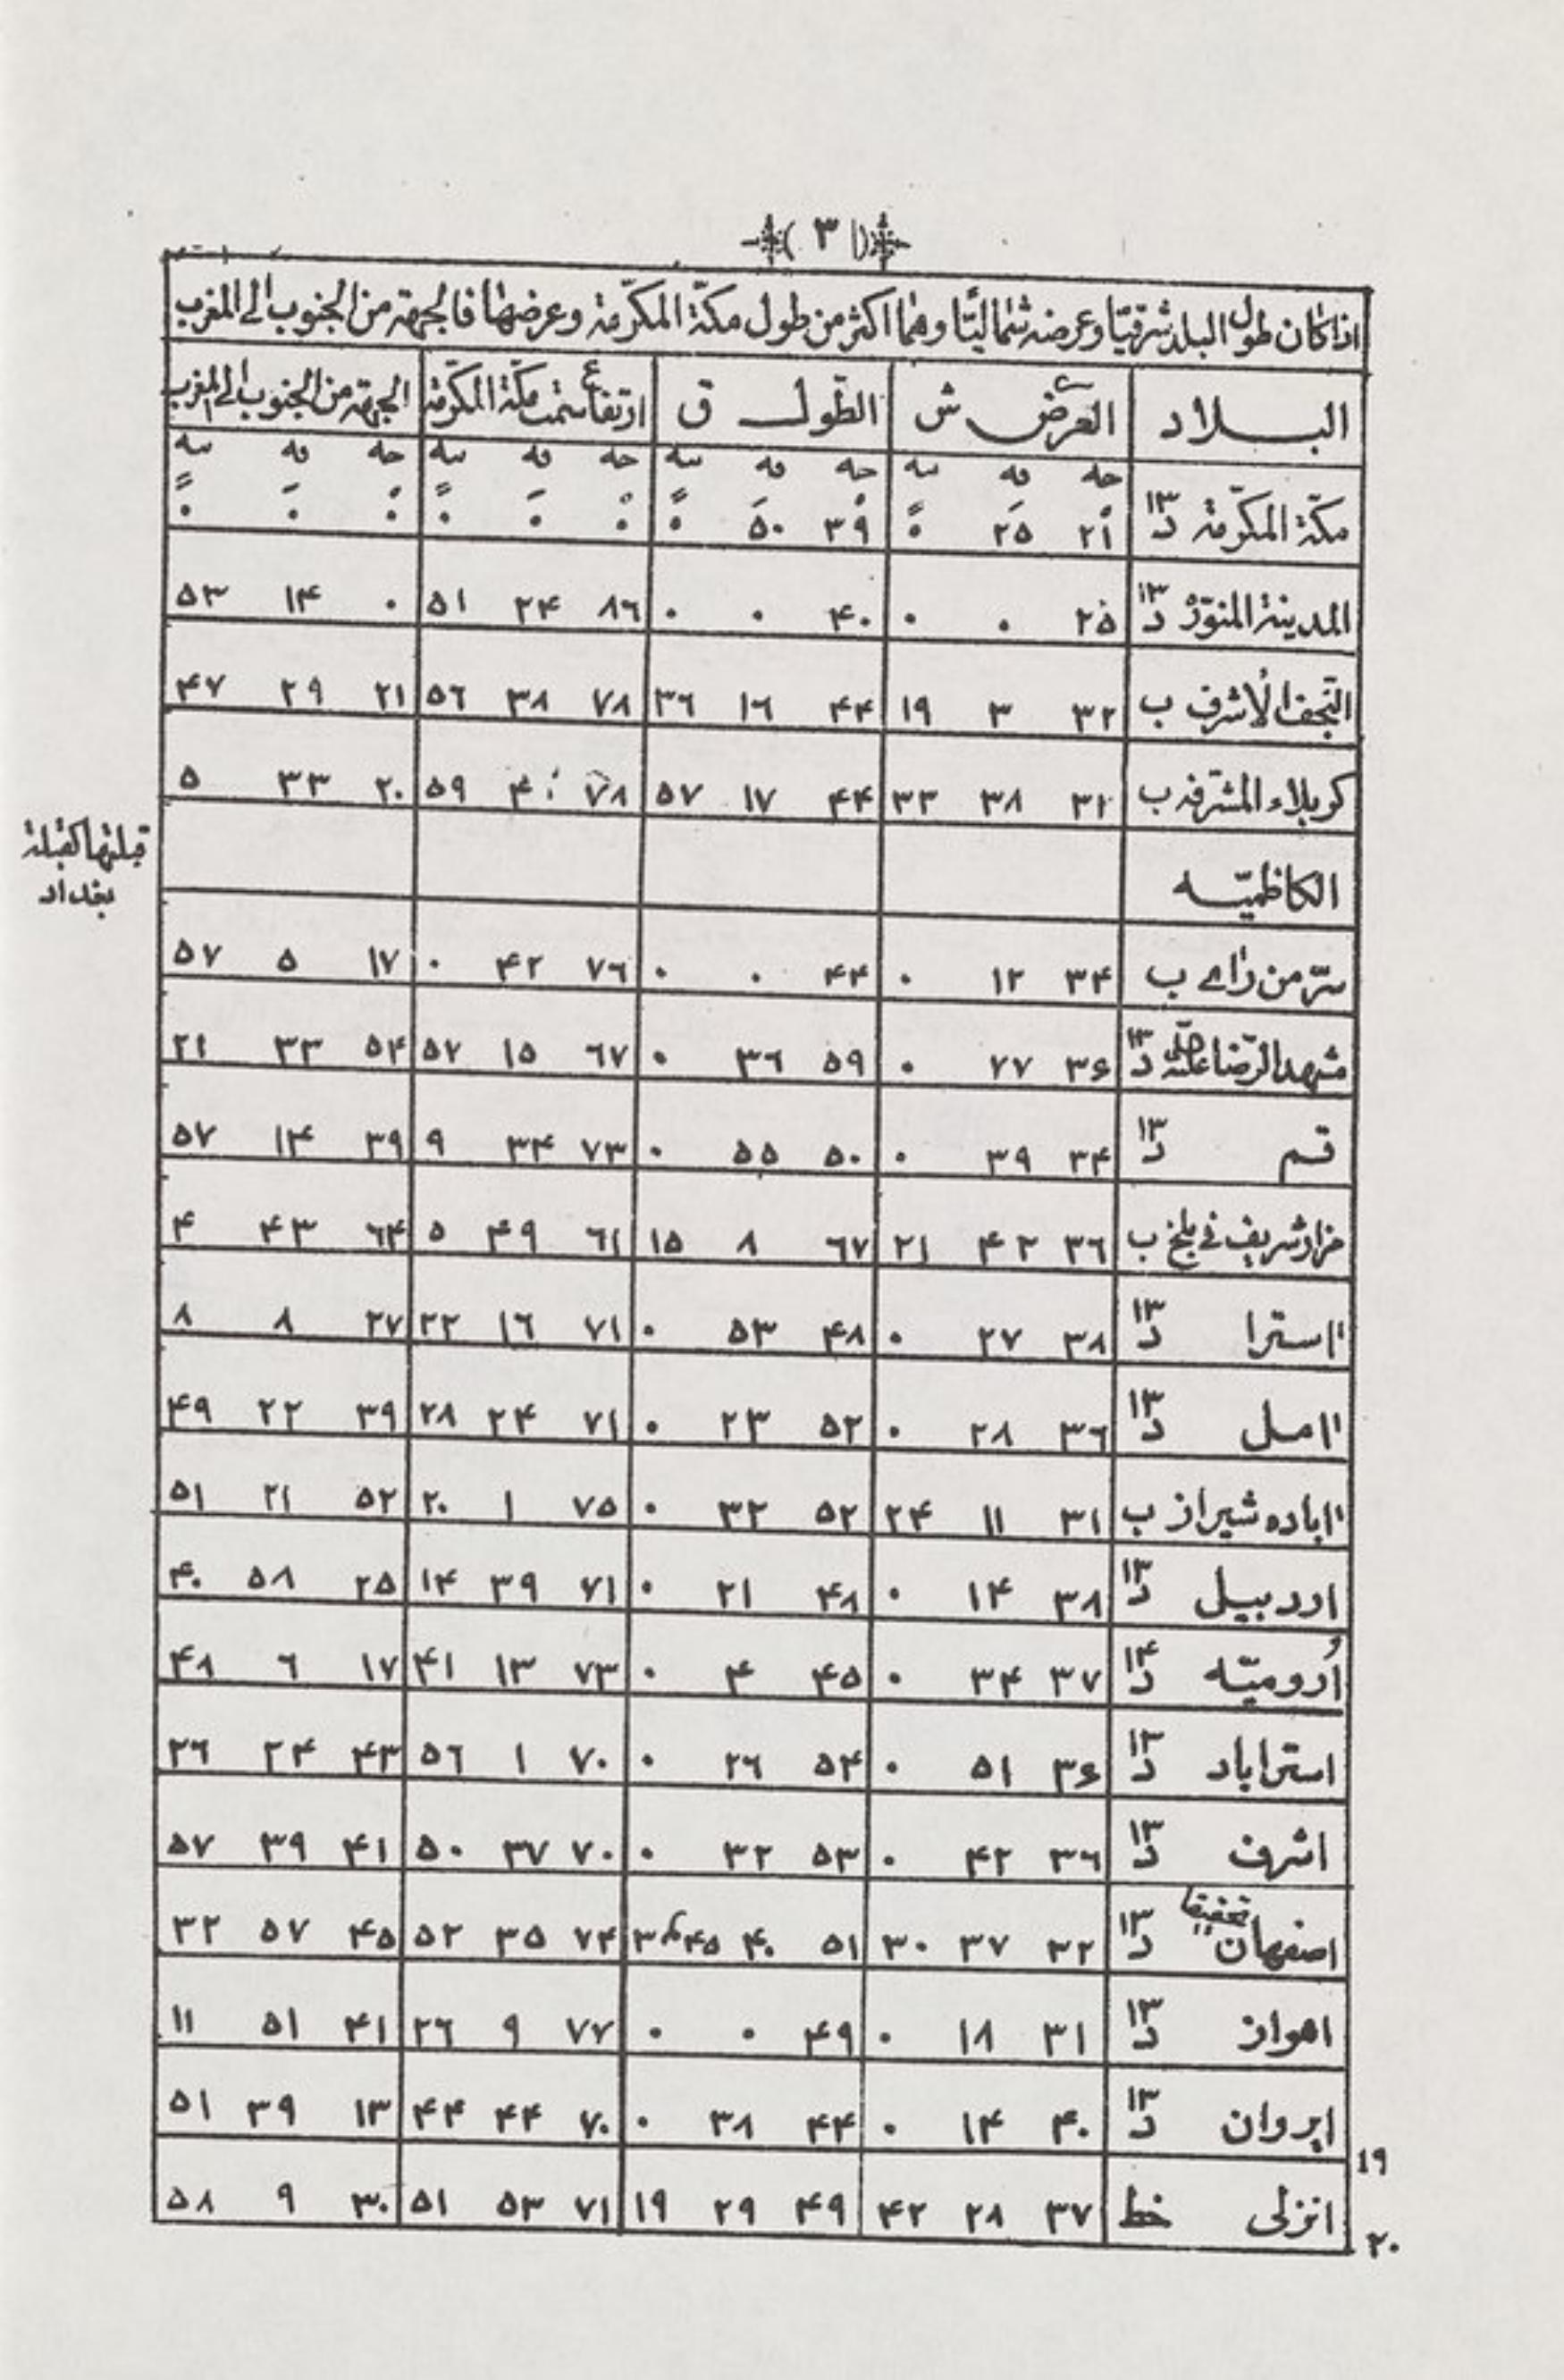 ﴿ ٣ ﴾
اذا كان طول البلد شرقيّا وعرضه شماليّا وهما اكثر من طول مكّة المكرّمة وعرضها فالجهة من الجنوب الى المغرب
البلاد العرض ش الطّول ق ارتفاع سمت مكّة المكرّمة الجهة من الجنوب الى المغرب
جه قه نيه جه قه نيه جه قه نيه جه قه نيه
مكّة المكرّمة ١٣ د ٢١ ٢٥ ٠ ٣٩ ٥٠ ٠ ٠ ٠ ٠ ٠ ٠ ٠
المدينة المنوّرة ١٣ د ٢٥ ٠ ٠ ٤٠ ٠ ٠ ٨٦ ٢۴ ٥١ ٠ ١۴ ٥٣
النّجف الأشرف ب ٣٢ ٣ ١٩ ۴۴ ١٦ ٣٦ ٧٨ ٣٨ ٥٦ ٢١ ٢٩ ۴٧
كربلاء المشرّفه ب ٣٢ ٣٨ ٣٣ ۴۴ ١٧ ٥٧ ٧٨ ۴٠ ٥٩ ٢٠ ٣٣ ٥
الكاظميّه
قبلتها كقبلة
بغداد
سرّ من رأى ب ٣۴ ١٢ ٠ ۴۴ ٠ ٠ ٧٦ ۴٢ ٠ ١٧ ٥ ٥٧
مشهد الرّضا ١٣ د ٣۶ ٧٧ ٠ ٥٩ ٣٦ ٠ ٦٧ ١٥ ٥٧ ٥۴ ٣٣ ٢١
قم ١٣ د ٣۴ ٣٩ ٠ ٥٠ ٥٥ ٠ ٧٣ ٣۴ ٩ ٣٩ ١۴ ٥٧
مزار شريف في بلخ ب ٣٦ ۴٢ ٢١ ٦٧ ٨ ١٥ ٦١ ۴٩ ٥ ٦۴ ۴٣ ۴
ااسترا ١٣ د ٣٨ ٢٧ ٠ ۴٨ ٥٣ ٠ ٧١ ١٦ ٢٢ ٢٧ ٨ ٨
اامل ١٣ د ٣٦ ٢٨ ٠ ٥٢ ٢٣ ٠ ٧١ ٢۴ ٢٨ ٣٩ ٢٢ ۴٩
ااباده شيراز ب ٣١ ١١ ٢۴ ٥٢ ٣٢ ٠ ٧٥ ١ ٢٠ ٥٢ ٢١ ٥١
اردبيل ١٣ د ٣٨ ١۴ ٠ ۴٨ ٢١ ٠ ٧١ ٣٩ ١۴ ٢٥ ٥٨ ۴٠
اُروميّه ١۴ د ٣٧ ٣۴ ٠ ۴٥ ۴ ٠ ٧٣ ١٣ ۴١ ١٧ ٦ ۴٨
استراباد ١٣ د ٣۶ ٥١ ٠ ٥۴ ٢٦ ٠ ٧٠ ١ ٥٦ ۴٣ ٢۴ ٢٦
اشرف ١٣ د ٣٦ ۴٢ ٠ ٥٣ ٣٢ ٠ ٧٠ ٣٧ ٥٠ ۴١ ٣٩ ٥٧
اصفهان تحقيقا ١٣ د ٣٢ ٣٧ ٣٠ ٥١ ۴٠ ۴٥ ٧۴ ٣٥ ٥٢ ۴٥ ٥٧ ٣٢
اهواز ١٣ د ٣١ ١٨ ٠ ۴٩ ٠ ٠ ٧٧ ٩ ٢٦ ۴١ ٥١ ١١
ايروان ١٣ د ۴٠ ١۴ ٠ ۴۴ ٣٨ ٠ ٧٠ ۴۴ ۴۴ ١٣ ٣٩ ٥١
١٩
انزلى خط ٣٧ ٢٨ ۴٢ ۴٩ ٢٩ ١٩ ٧١ ٥٣ ٥١ ٣٠ ٩ ٥٨
٢٠